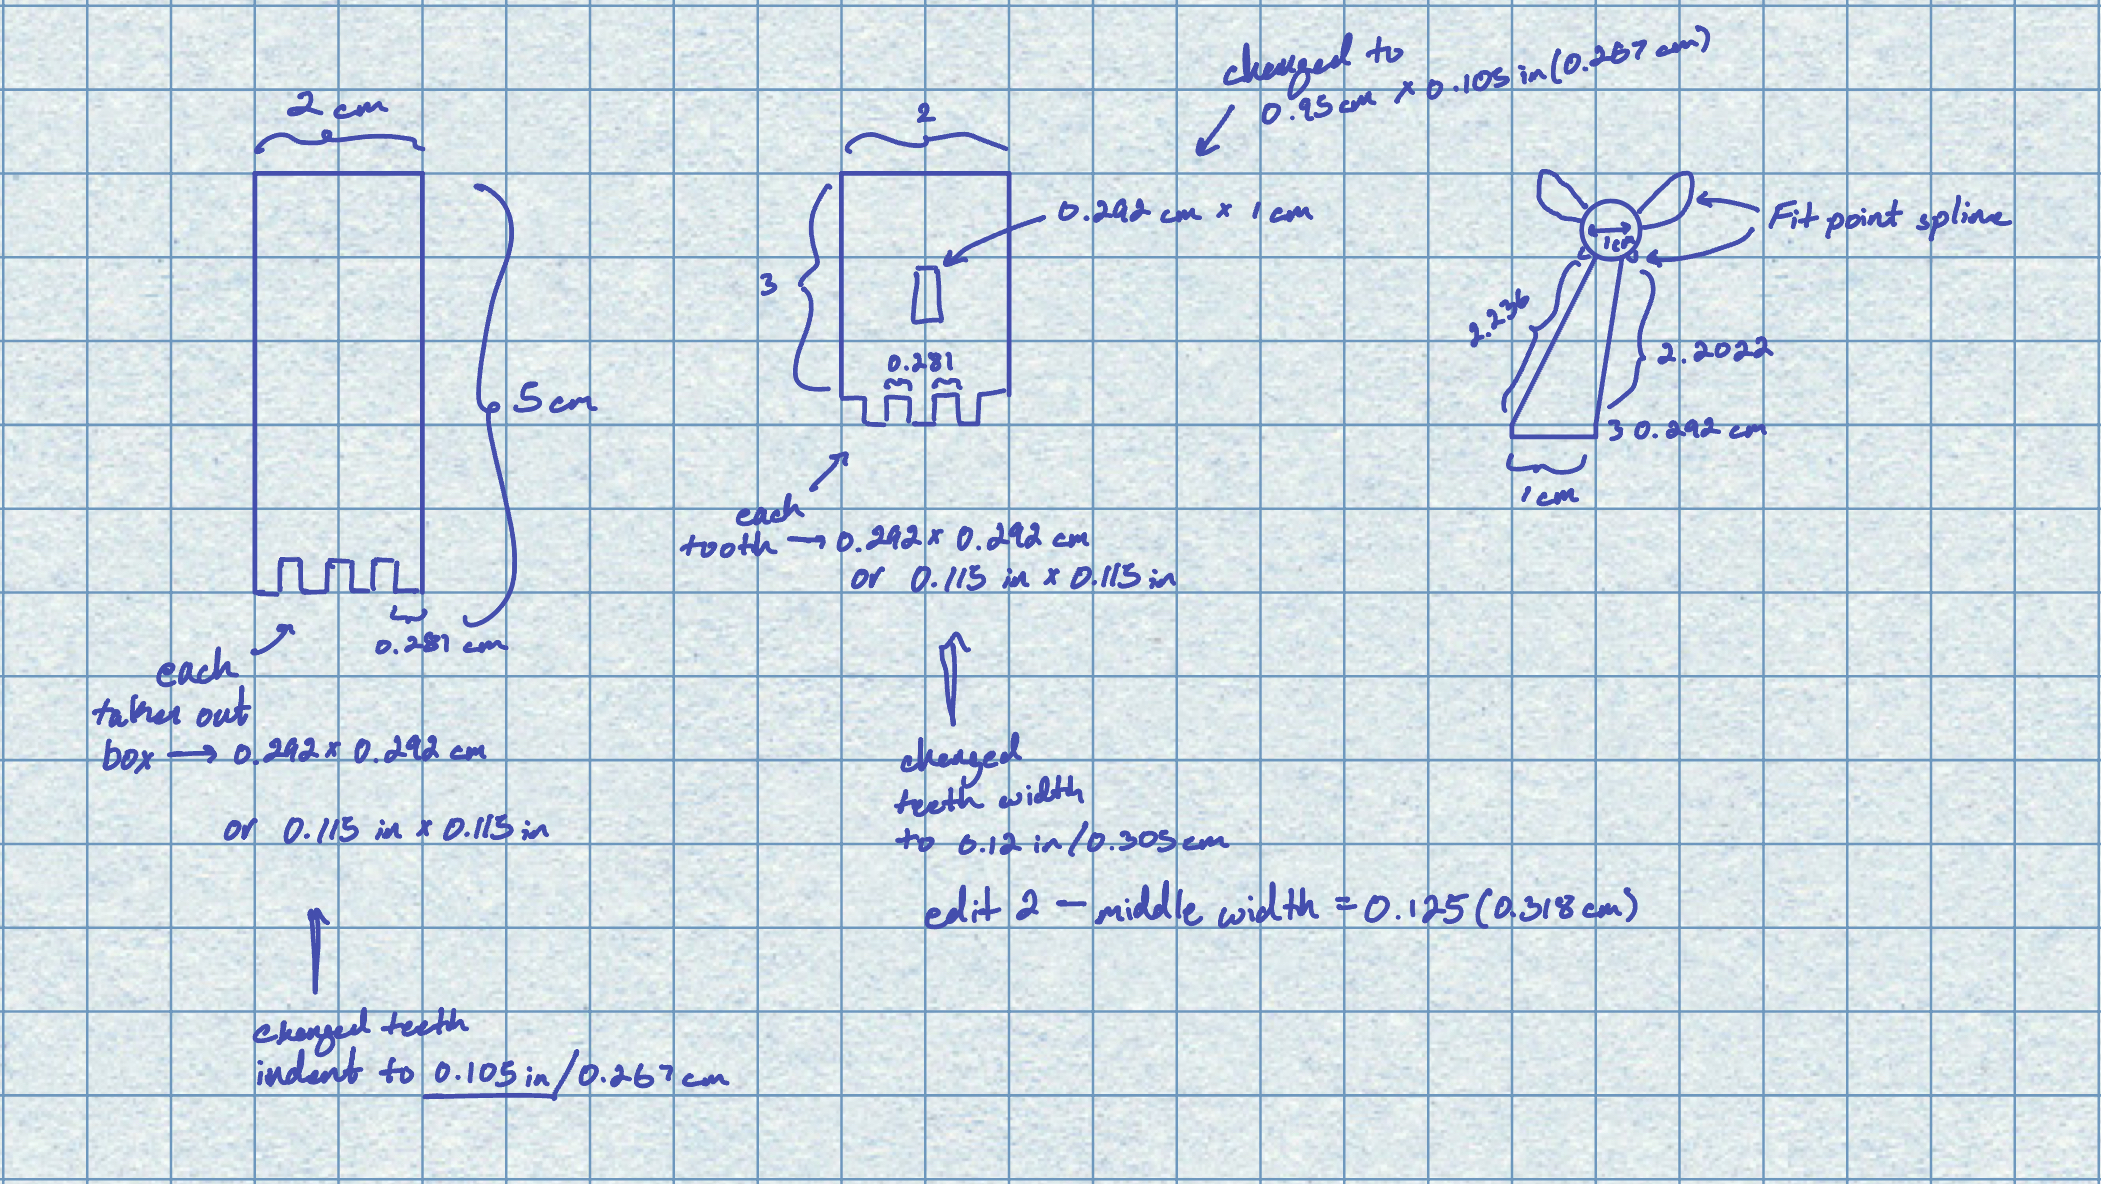 2 cm
5 cm
0.281 cm
each
taken out
box → 0.292 x 0.292 cm
or 0.115 in x 0.115 in
changed teeth
indent to 0.105 in/0.267 cm
2
3
changed to
0.95 cm x 0.105 in (0.267 cm)
0.292 cm x 1 cm
0.281
each
tooth → 0.292 x 0.292 cm
or 0.115 in x 0.115 in
changed
teeth width
to 0.12 in/0.305 cm
edit 2 - middle width = 0.125 (0.318 cm)
Fit point spline
1cm
2.236
2.2022
0.292 cm
1 cm